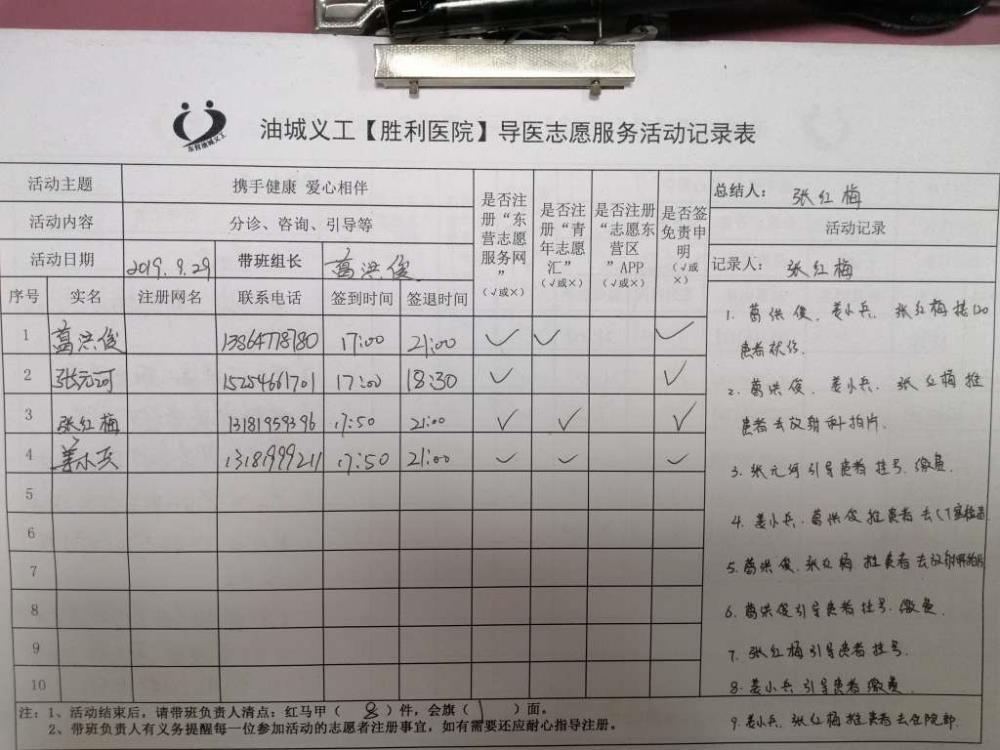 油城义工【胜利医院】导医志愿服务活动记录表
东营油城义工
活动主题 携手健康 爱心相伴
活动内容 分诊、咨询、引导等
活动日期 2019.9.29 带班组长 葛洪俊
是否注册“东营志愿服务网”（√或×）
是否注册“青年志愿汇”（√或×）
是否注册“志愿东营区”APP（√或×）
是否签免责申明（√或×）
总结人： 张红梅
活动记录
记录人： 张红梅
序号 实名 注册网名 联系电话 签到时间 签退时间
1 葛洪俊 13864778780 17:00 21:00 ✓ ✓ ✓
2 张元河 15254661701 17:00 18:30 ✓ ✓
3 张红梅 13181959396 17:50 21:00 ✓ ✓ ✓
4 姜小兵 13181999211 17:50 21:00 ✓ ✓ ✓
5
6
7
8
9
10
1. 葛洪俊、姜小兵、张红梅接120
患者
2. 葛洪俊、姜小兵、张红梅推
患者去放射科拍片.
3. 张元河引导患者挂号.缴费.
4. 姜小兵.葛洪俊推患者去CT室检查
5. 葛洪俊.张红梅推患者去放射科拍片
6. 葛洪俊引导患者挂号.缴费.
7. 张红梅引导患者挂号.
8. 姜小兵引导患者缴费
9. 姜小兵、张红梅推患者去住院部.
注：1、活动结束后，请带班负责人清点：红马甲（ 8 ）件，会旗（ 1 ）面。
2、带班负责人有义务提醒每一位参加活动的志愿者注册事宜，如有需要还应耐心指导注册。